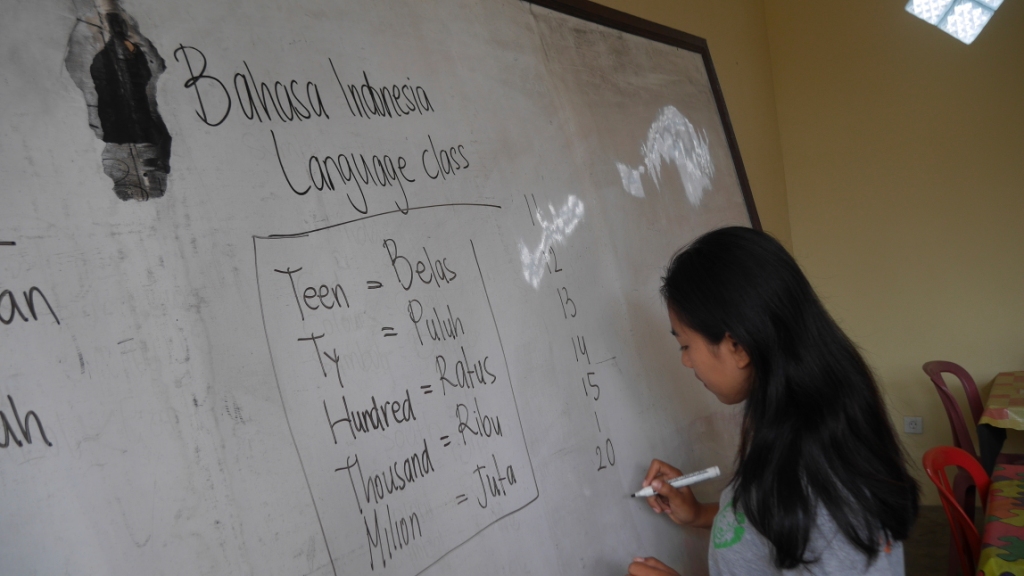 Bahasa Indonesia
Language class
an
ah
Teen = Belas
Ty = Puluh
Hundred = Ratus
Thousand = Ribu
Milion = Juta
11
12
13
14
15
1
20